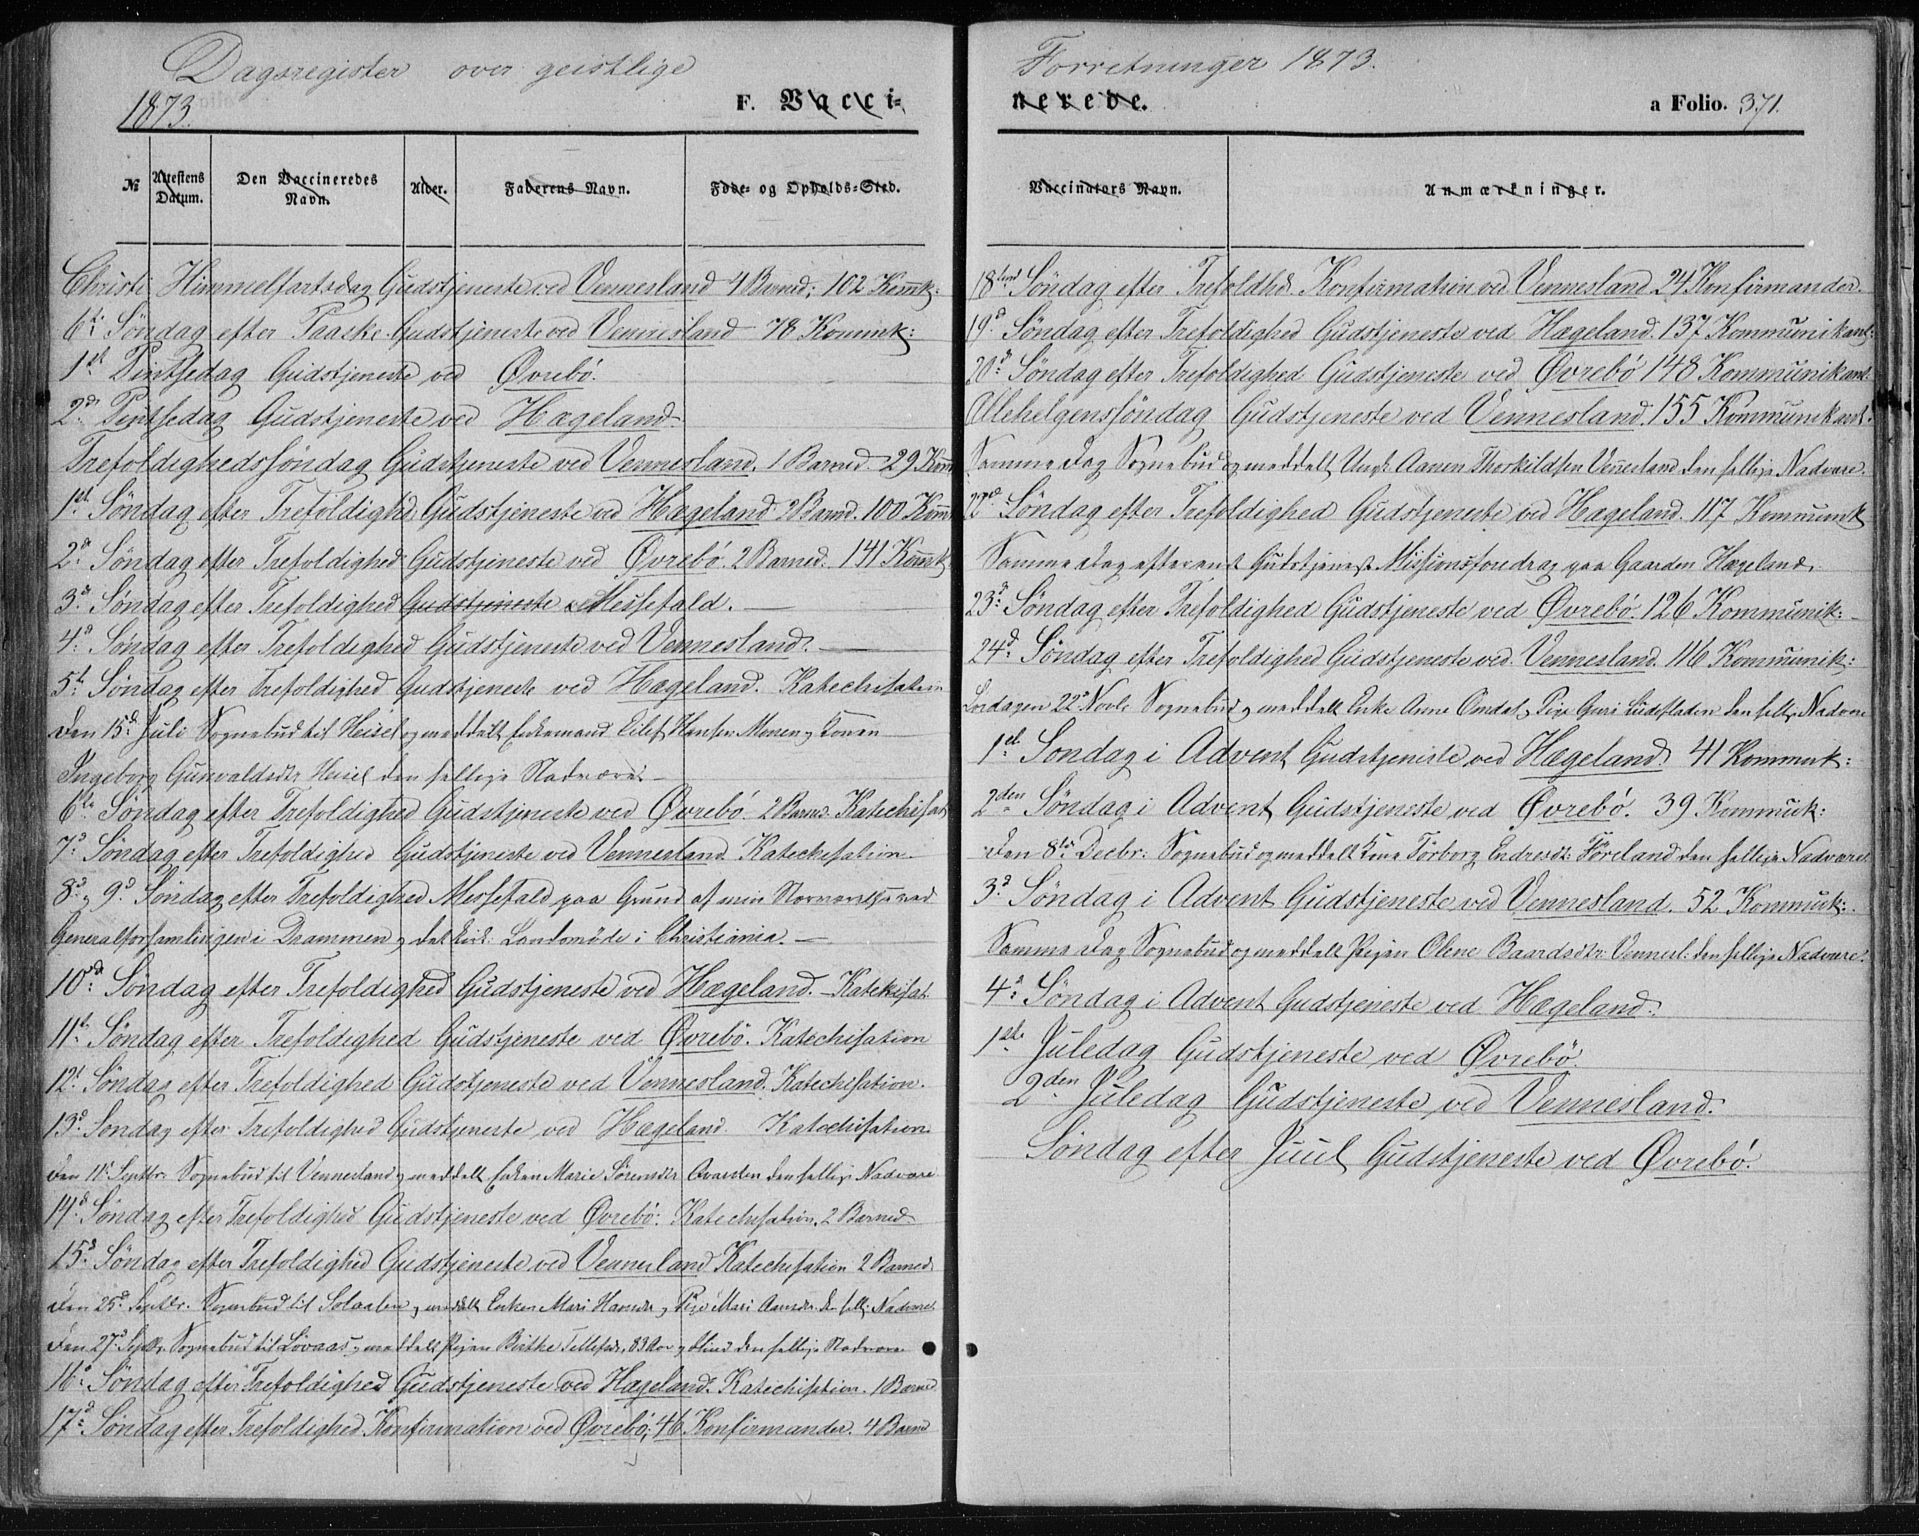 Dagsregister over geistlige
1873.
F. Vacci=
№
Attestens Datum.
Den Vaccineredes Navn.
Alder.
Faderens Navn.
Føde= og Opholds=Sted.
Christi Himmelfartsdag Gudstjeneste ved Vennesland 4 Barned; 102 Komk:
6te Søndag efter Paaske Gudstjeneste ved Vennesland 78 Kommk:
1ste Pintsedag Gudstjeneste ved Øvrebö.
2den Pintsedag Gudstjeneste ved Hægeland
Trefoldighedssøndag Gudstjeneste ved Vennesland. 1 Barned. 29 Kom
1ste Søndag efter Trefoldighed Gudstjeneste ved Hægeland 2 Barned. 100 Komm
2d Søndag efter Trefoldighed Gudstjeneste ved Øvrebö. 2 Barned. 141 Komk
3d Søndag efter Trefoldighed Gudstjeneste Messefald.
4d Søndag efter Trefoldighed Gudstjeneste ved Vennesland.
5te Søndag efter Trefoldighed Gudstjeneste ved Hægeland. Katechisation
Den 15d Juli Sognebud til Heisel og meddelt Enkemand Eilef Hansen Monen og Konen
Ingeborg Gunvaldsdtr Heisel den hellige Nadvere
6te Søndag efter Trefoldighed Gudstjeneste ved Øvrebö. 2 Barned. Katechisat
7d Søndag efter Trefoldighed Gudstjeneste ved Vennesland Katechisation.
8d og 9d Søndag efter Trefoldighed Messefald paa Grund af min Nærværelse ved
Generalforsamlingen i Drammen og det kirk. Landsmöde i Christiania.
10d Søndag efter Trefoldighed Gudstjeneste ved Hægeland. Katekisat.
11te Søndag efter Trefoldighed Gudstjeneste ved Øvrebö. Katechisation
12te Søndag efter Trefoldighed Gudstjeneste ved Vennesland. Katechisation.
13d Søndag efter Trefoldighed Gudstjeneste ved Hægeland. Katechisation
Den 11te Septbr. Sognebud til Vennesland og meddelt Enken Marie Sörensdtr den hellige Nadvere
14d Søndag efter Trefoldighed Gudstjeneste ved Øvrebö. Katechisation. 2 Barned
15d Søndag efter Trefoldighed Gudstjeneste ved Vennesland Katechisation 2 Barned
Den 25d Septbr. Sognebud til og meddelt Enken Mari Hansdtr og Pige Mari Aamsdr. den hell: Nadvere
Den 27d Septbr. Sognebud til Lövaas og meddelt Pigen Birthe Tellefsdr. 83 Aar og blind den hellige Nadvere
16d Søndag efter Trefoldighed Gudstjeneste ved Hægeland. Katechisation. 1 Barned
17d Søndag efter Trefoldighed Konfirmation ved Øvrebö; 46 Konfirmander. 4 Barned
Forretninger 1873.
nerede.
a Folio. 371.
Vaccinators Navn.
Anmærkninger.
18tend Søndag efter Trefoldhd. Konfirmation ved Vennesland 24 Konfirmander.
19d Søndag efter Trefoldighed Gudstjeneste ved Hægeland. 137 Kommunikant:
20d Søndag efter Trefoldighed Gudstjeneste ved Øvrebö 148 Kommunikant.
Allehelgenssöndag Gudstjeneste ved Vennesland. 155 Kommunikant.
Samme Dag Sognebud og meddelt Ungk. Aanen Thorkildsen Vennesland den hellige Nadvere.
22d Søndag efter Trefoldighed Gudstjeneste ved Hægeland. 117 Kommunik
Samme Dag efter endt Gudstjeneste Missionsforedrag paa Gaarden Hægeland.
23d Søndag efter Trefoldighed Gudstjeneste ved Øvrebö. 126 Kommunik:
24d Søndag efter Trefoldighed Gudstjeneste ved Vennesland. 116 Kommunik:
Lördagen 22d Novbr Sognebud og meddelt Enke Anne Omdal og Pige Guri den hellige Nadvere
1ste Søndag i Advent Gudstjeneste ved Hægeland. 41 Kommunk:
2den Søndag i Advent Gudstjeneste ved Øvrebö. 39 Kommuk:
Den 8de Decbr: Sognebud og meddelt Kone Torborg Endresdt. Föreland den hellige Nadvere
3d Søndag i Advent Gudstjeneste ved Vennesland. 52 Kommuk:
Samme Dag Sognebud og meddelt Pigen Olene Baardsdtr. Vennesl: den hellige Nadvere.
4d Søndag i Advent Gudstjeneste ved Hægeland.
1ste Juledag Gudstjeneste ved Øvrebö
2den Juledag Gudstjeneste ved Vennesland.
Søndag efter Juul Gudstjeneste ved Øvrebö.